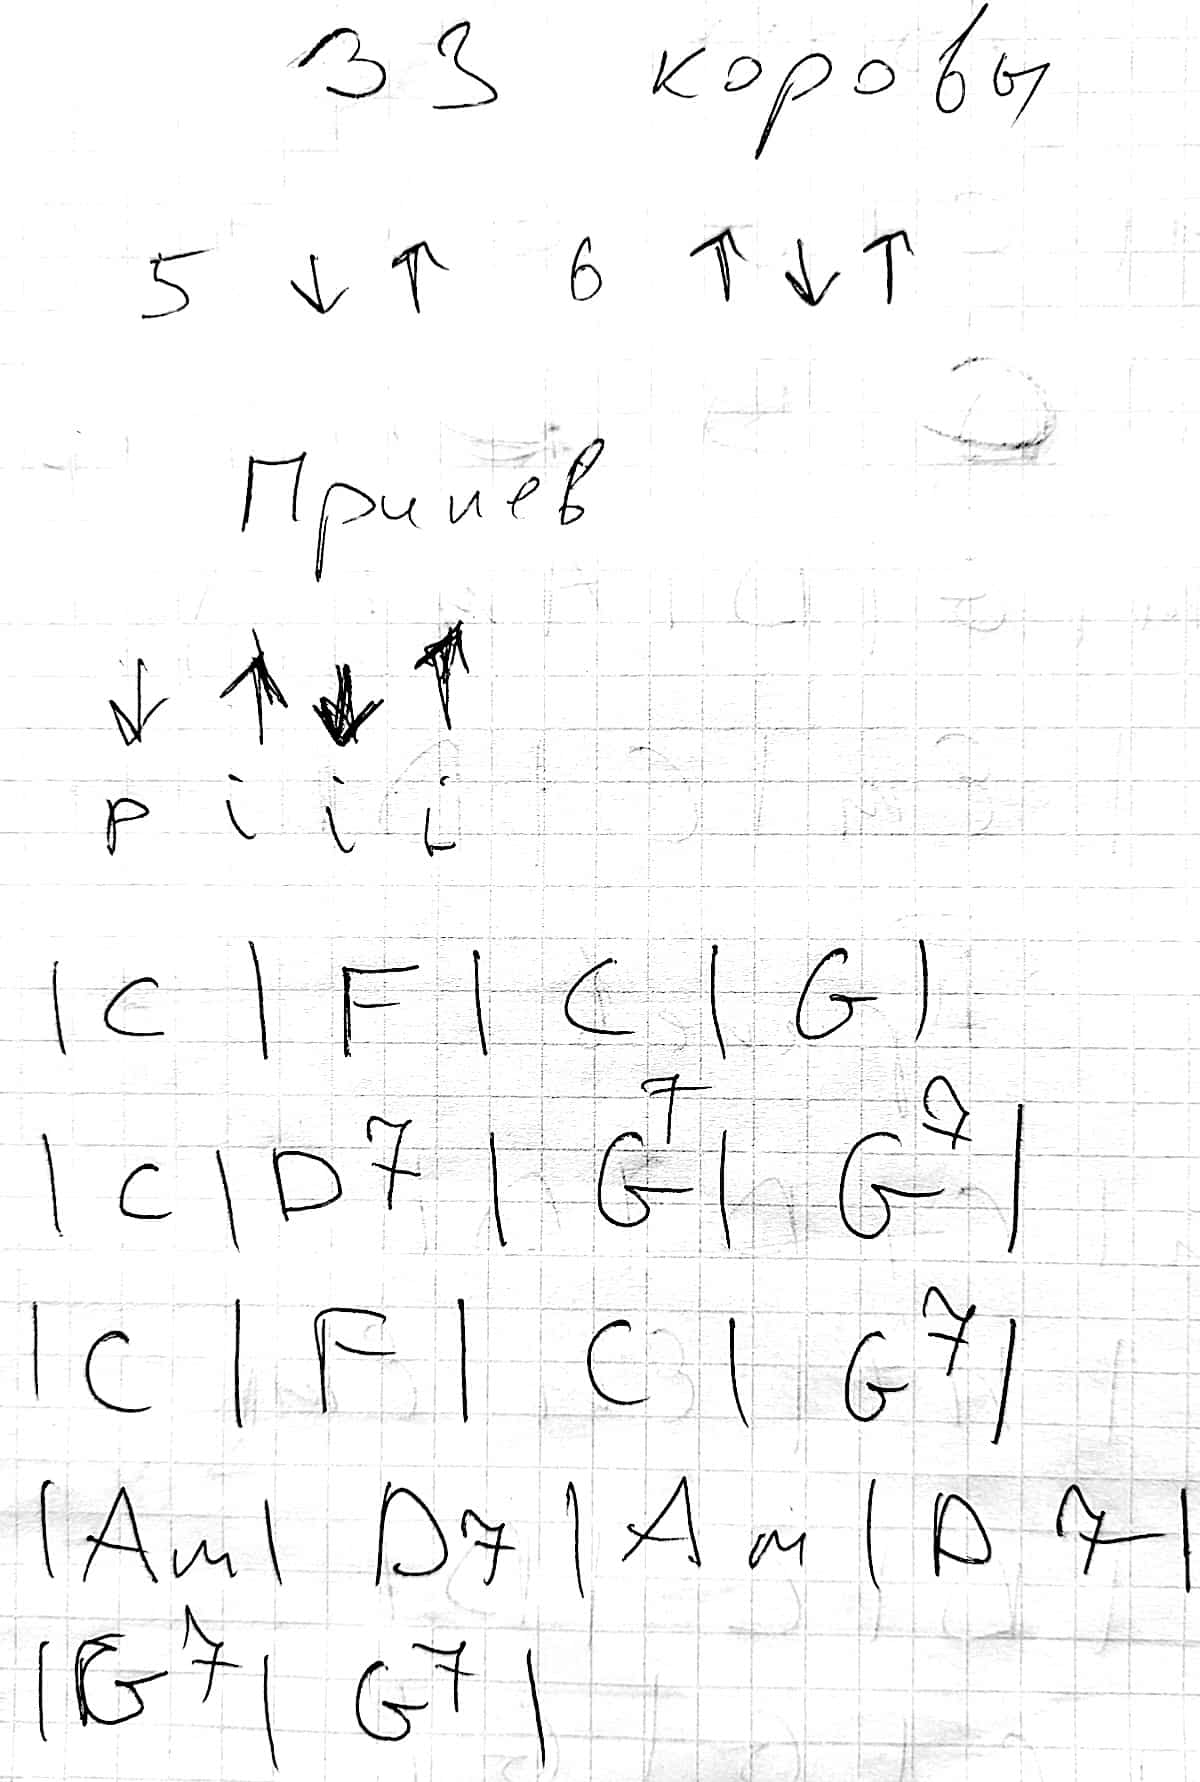 33 коровы
5 ↓ ↑ 6 ↑ ↓ ↑
Припев
↓ ↑ ↓ ↑
p i i i
| C | F | C | G |
| C | D7 | G7 | G7 |
| C | F | C | G7 |
| Am | D7 | Am | D7 |
| G7 | G7 |